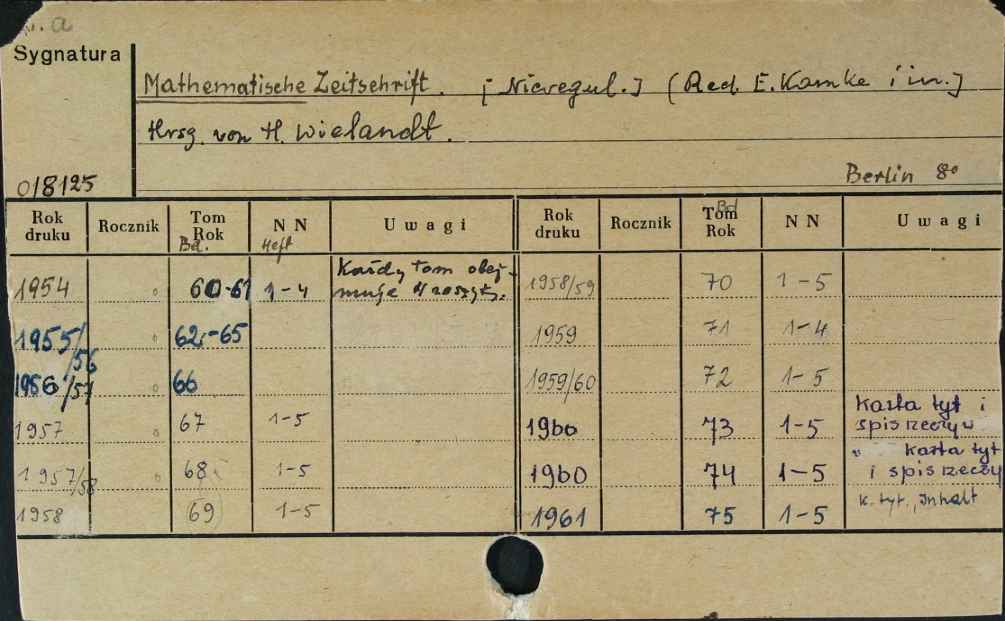 a
Sygnatura
Mathematische Zeitschrift. [Nieregul.] (Red. E. Kamke i in.]
Hrsg. von H. Wielandt.
Berlin 8°
018125
Rok druku Rocznik Tom Rok Bd. NN Heft Uwagi Rok druku Rocznik Tom Rok Bd NN Uwagi
1954 60-61 1-4 Każdy tom obej-muje 4 zeszyty. 1958/59 70 1-5
1955/56 62-65 1959 71 1-4
1956/57 66 1959/60 72 1-5
1957 67 1-5 1960 73 1-5 Karta tyt i spis rzeczy w
1957/58 68 1-5 1960 74 1-5 " karta tyt i spis rzeczy
1958 69 1-5 1961 75 1-5 k. tyt., Inhalt